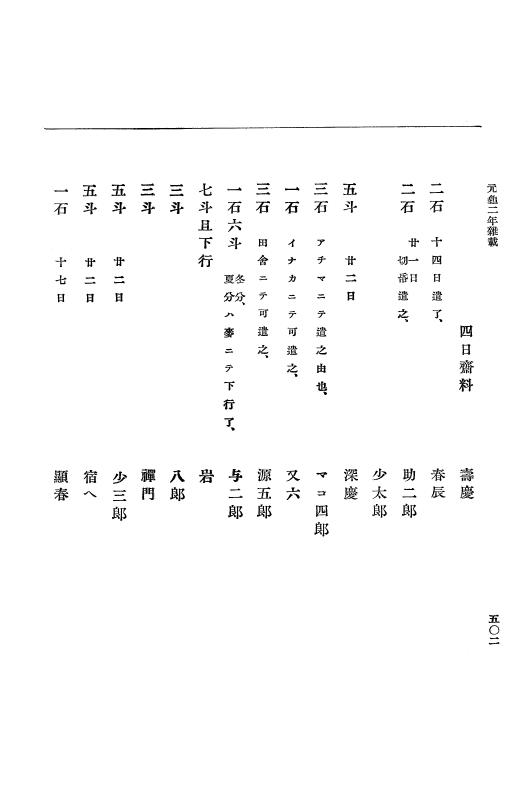 元龜二年雜載
五〇二
四日齋料 壽慶
二石 十四日遣了、 春辰
二石 廿一日切符遣之、 助二郎
少太郎
五斗 廿二日 深慶
三石 アチマニテ遣之由也、 マコ四郎
一石 イナカニテ可遣之、 又六
三石 田舍ニテ可遣之、 源五郎
一石六斗 冬分、夏分ハ麥ニテ下行了、 与二郎
七斗且下行 岩
三斗 八郎
三斗 禪門
五斗 廿二日 少三郎
五斗 廿二日 宿へ
一石 十七日 顯春